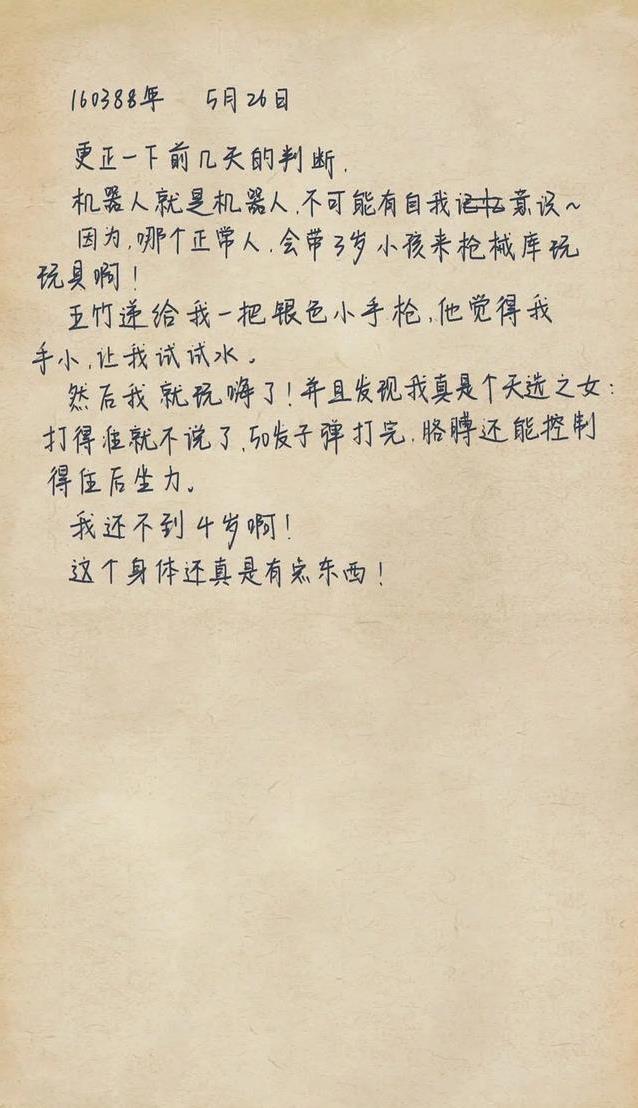 160388年 5月26日
更正一下前几天的判断.
机器人就是机器人.不可能有自我记忆意识～
因为,哪个正常人.会带3岁小孩来枪械库玩
玩具啊!
五竹递给我一把银色小手枪.他觉得我
手小,让我试试水。
然后我就玩嗨了!并且发现我真是个天选之女:
打得准就不说了,50发子弹打完.胳膊还能控制
得住后坐力。
我还不到4岁啊!
这个身体还真是有点东西!